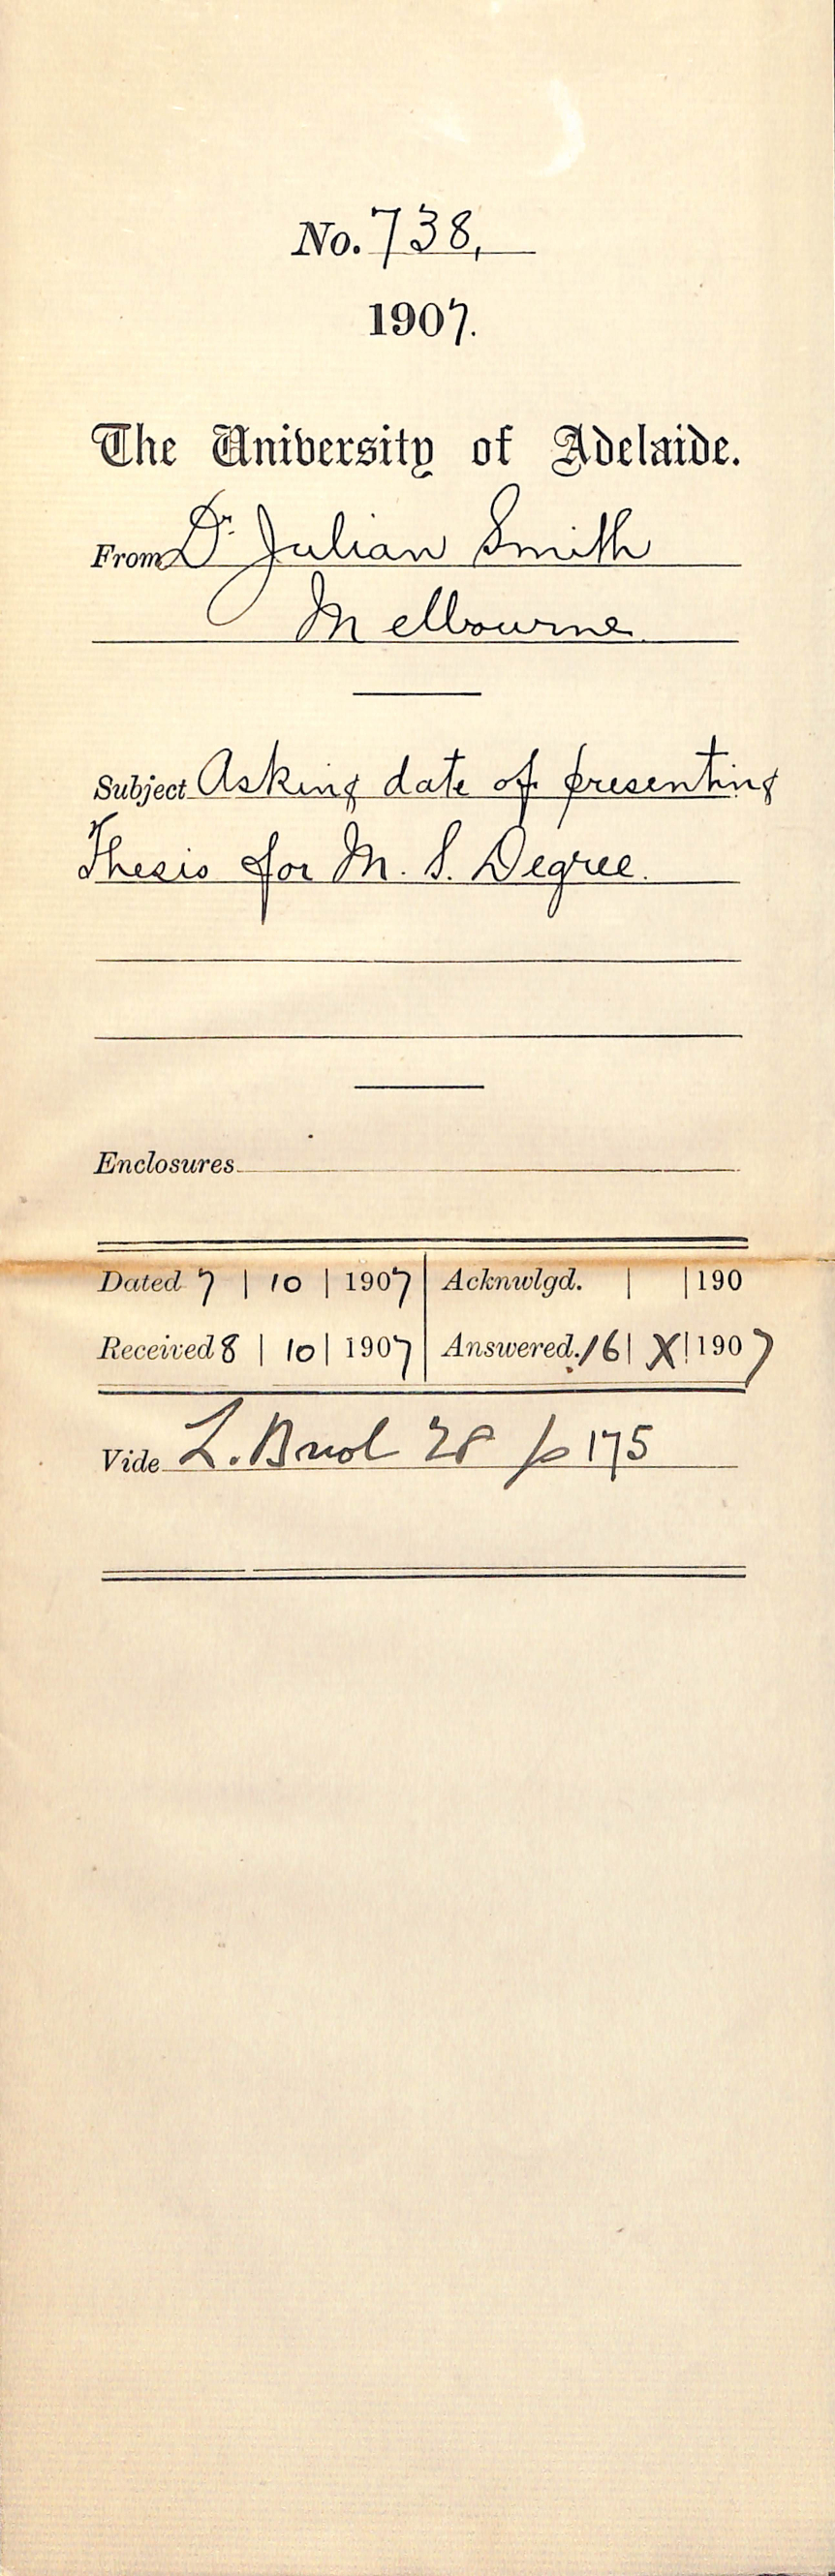 No. 738,
1907.
The University of Adelaide.
From Dr. Julian Smith
Melbourne
Subject Asking date of presenting
Thesis for M. S. Degree.
Enclosures
Dated 7 | 10 | 1907 Acknwlgd. | | 190
Received 8 | 10 | 1907 Answered. 16 | X | 1907
Vide L. 28 p 175